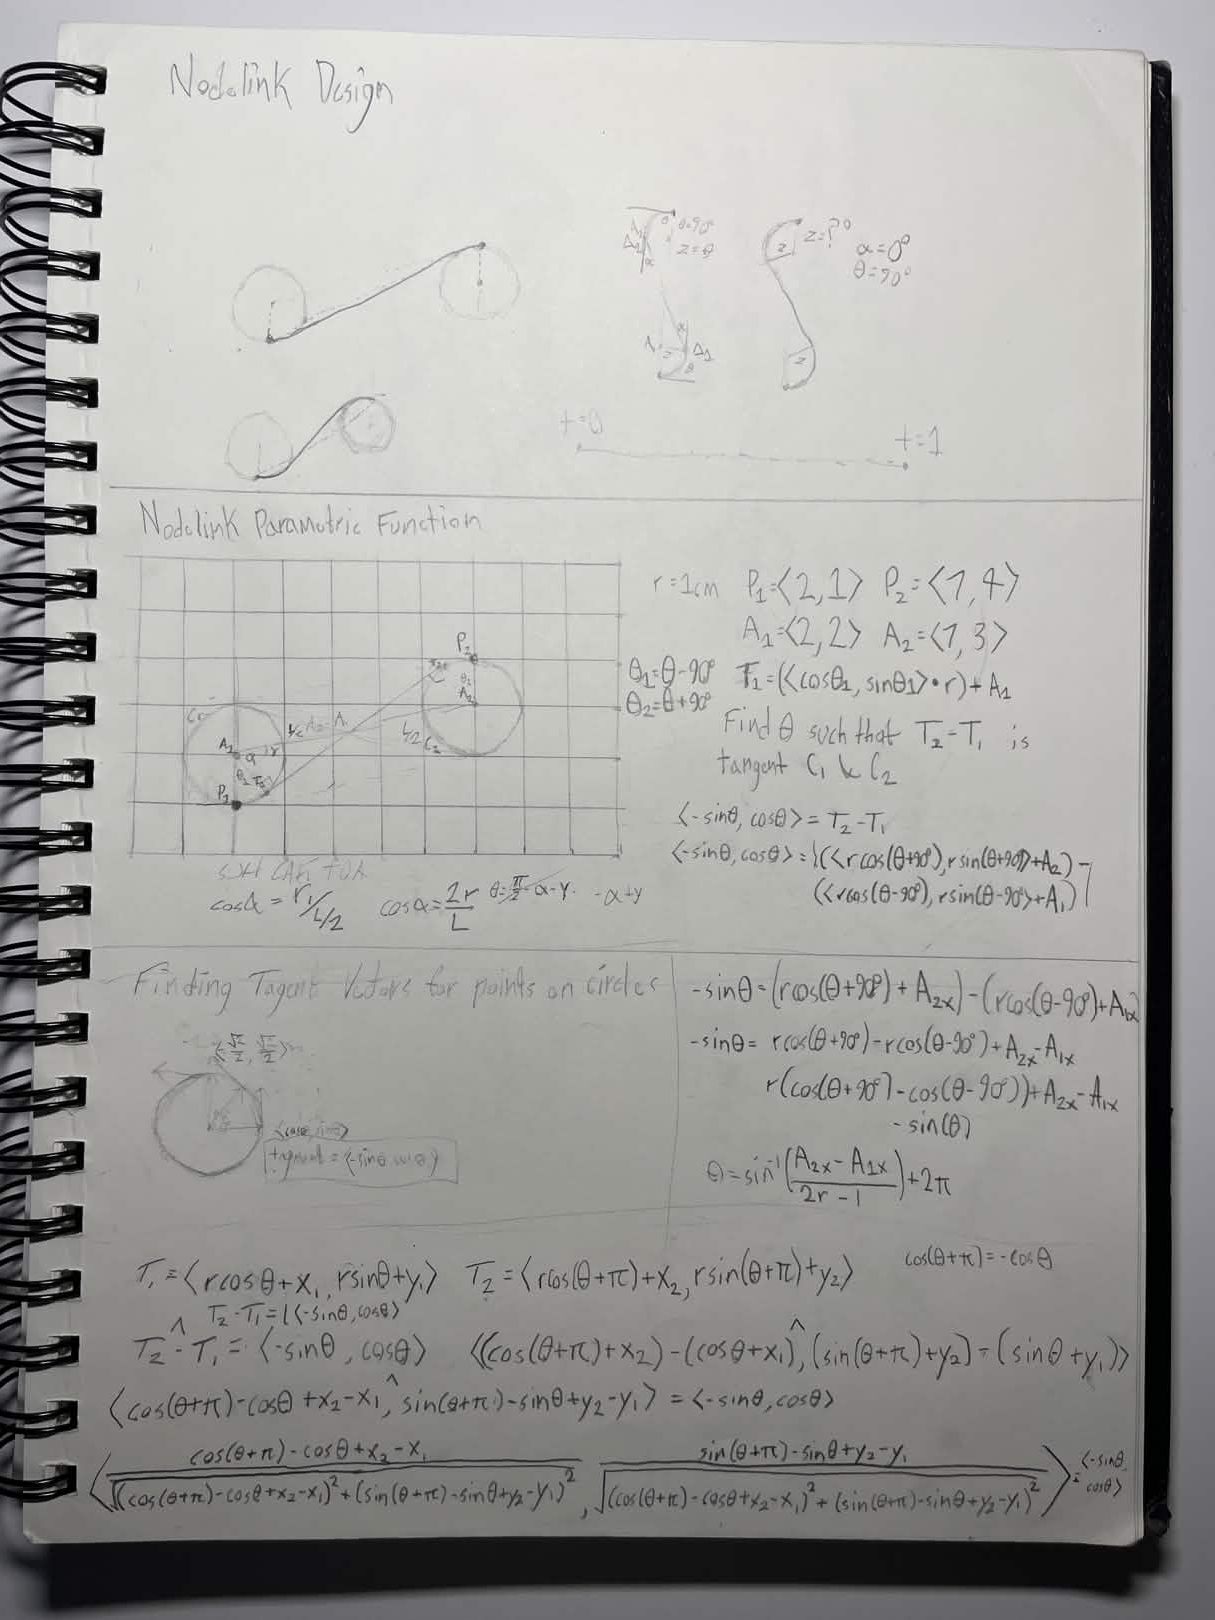 Nodelink Design
θ=90°
z=θ
z=?°
α=0°
θ=90°
t=0
t=1
Nodelink Parametric Function
r=1cm P₁=⟨2,1⟩ P₂=⟨7,4⟩
A₁=⟨2,2⟩ A₂=⟨7,3⟩
θ₁=θ-90° T₁=(⟨cosθ₁, sinθ₁⟩•r)+A₁
θ₂=θ+90°
Find θ such that T₂-T₁ is
tangent C₁ & C₂
⟨-sinθ, cosθ⟩=T₂-T₁
⟨-sinθ, cosθ⟩=|(⟨rcos(θ+90°), rsin(θ+90°)⟩+A₂)-
(⟨rcos(θ-90°), rsin(θ-90°⟩+A₁)|
P₂
A₂
C₁
A₂-A₁
L/2
C₂
A₁
α
r
P₁
SOH CAH TOA
cosα=r₁/L/2 cosα=2r/L θ=π/2-α-y -α+y
Finding Tagent Vectors for points on circles
⟨√2/2, √2/2⟩
⟨cosθ, sinθ⟩
tangent=⟨-sinθ, cosθ⟩
-sinθ=(rcos(θ+90°)+A₂ₓ)-(rcos(θ-90°)+A₁ₓ)
-sinθ= rcos(θ+90°)-rcos(θ-90°)+A₂ₓ-A₁ₓ
r(cos(θ+90°)-cos(θ-90°))+A₂ₓ-A₁ₓ
-sin(θ)
θ=sin⁻¹((A₂ₓ-A₁ₓ)/(2r-1))+2π
T₁=⟨rcosθ+x₁, rsinθ+y₁⟩ T₂=⟨rcos(θ+π)+x₂, rsin(θ+π)+y₂⟩ cos(θ+π)=-cosθ
T₂-T₁=l⟨-sinθ, cosθ⟩
T₂^-T₁=⟨-sinθ, cosθ⟩ ⟨(cos(θ+π)+x₂)-(cosθ+x₁)^, (sin(θ+π)+y₂)-(sinθ+y₁)⟩
⟨cos(θ+π)-cosθ+x₂-x₁^, sin(θ+π)-sinθ+y₂-y₁⟩=⟨-sinθ, cosθ⟩
⟨(cos(θ+π)-cosθ+x₂-x₁)/√((cos(θ+π)-cosθ+x₂-x₁)²+(sin(θ+π)-sinθ+y₂-y₁)²), (sin(θ+π)-sinθ+y₂-y₁)/√((cos(θ+π)-cosθ+x₂-x₁)²+(sin(θ+π)-sinθ+y₂-y₁)²)⟩=⟨-sinθ, cosθ⟩